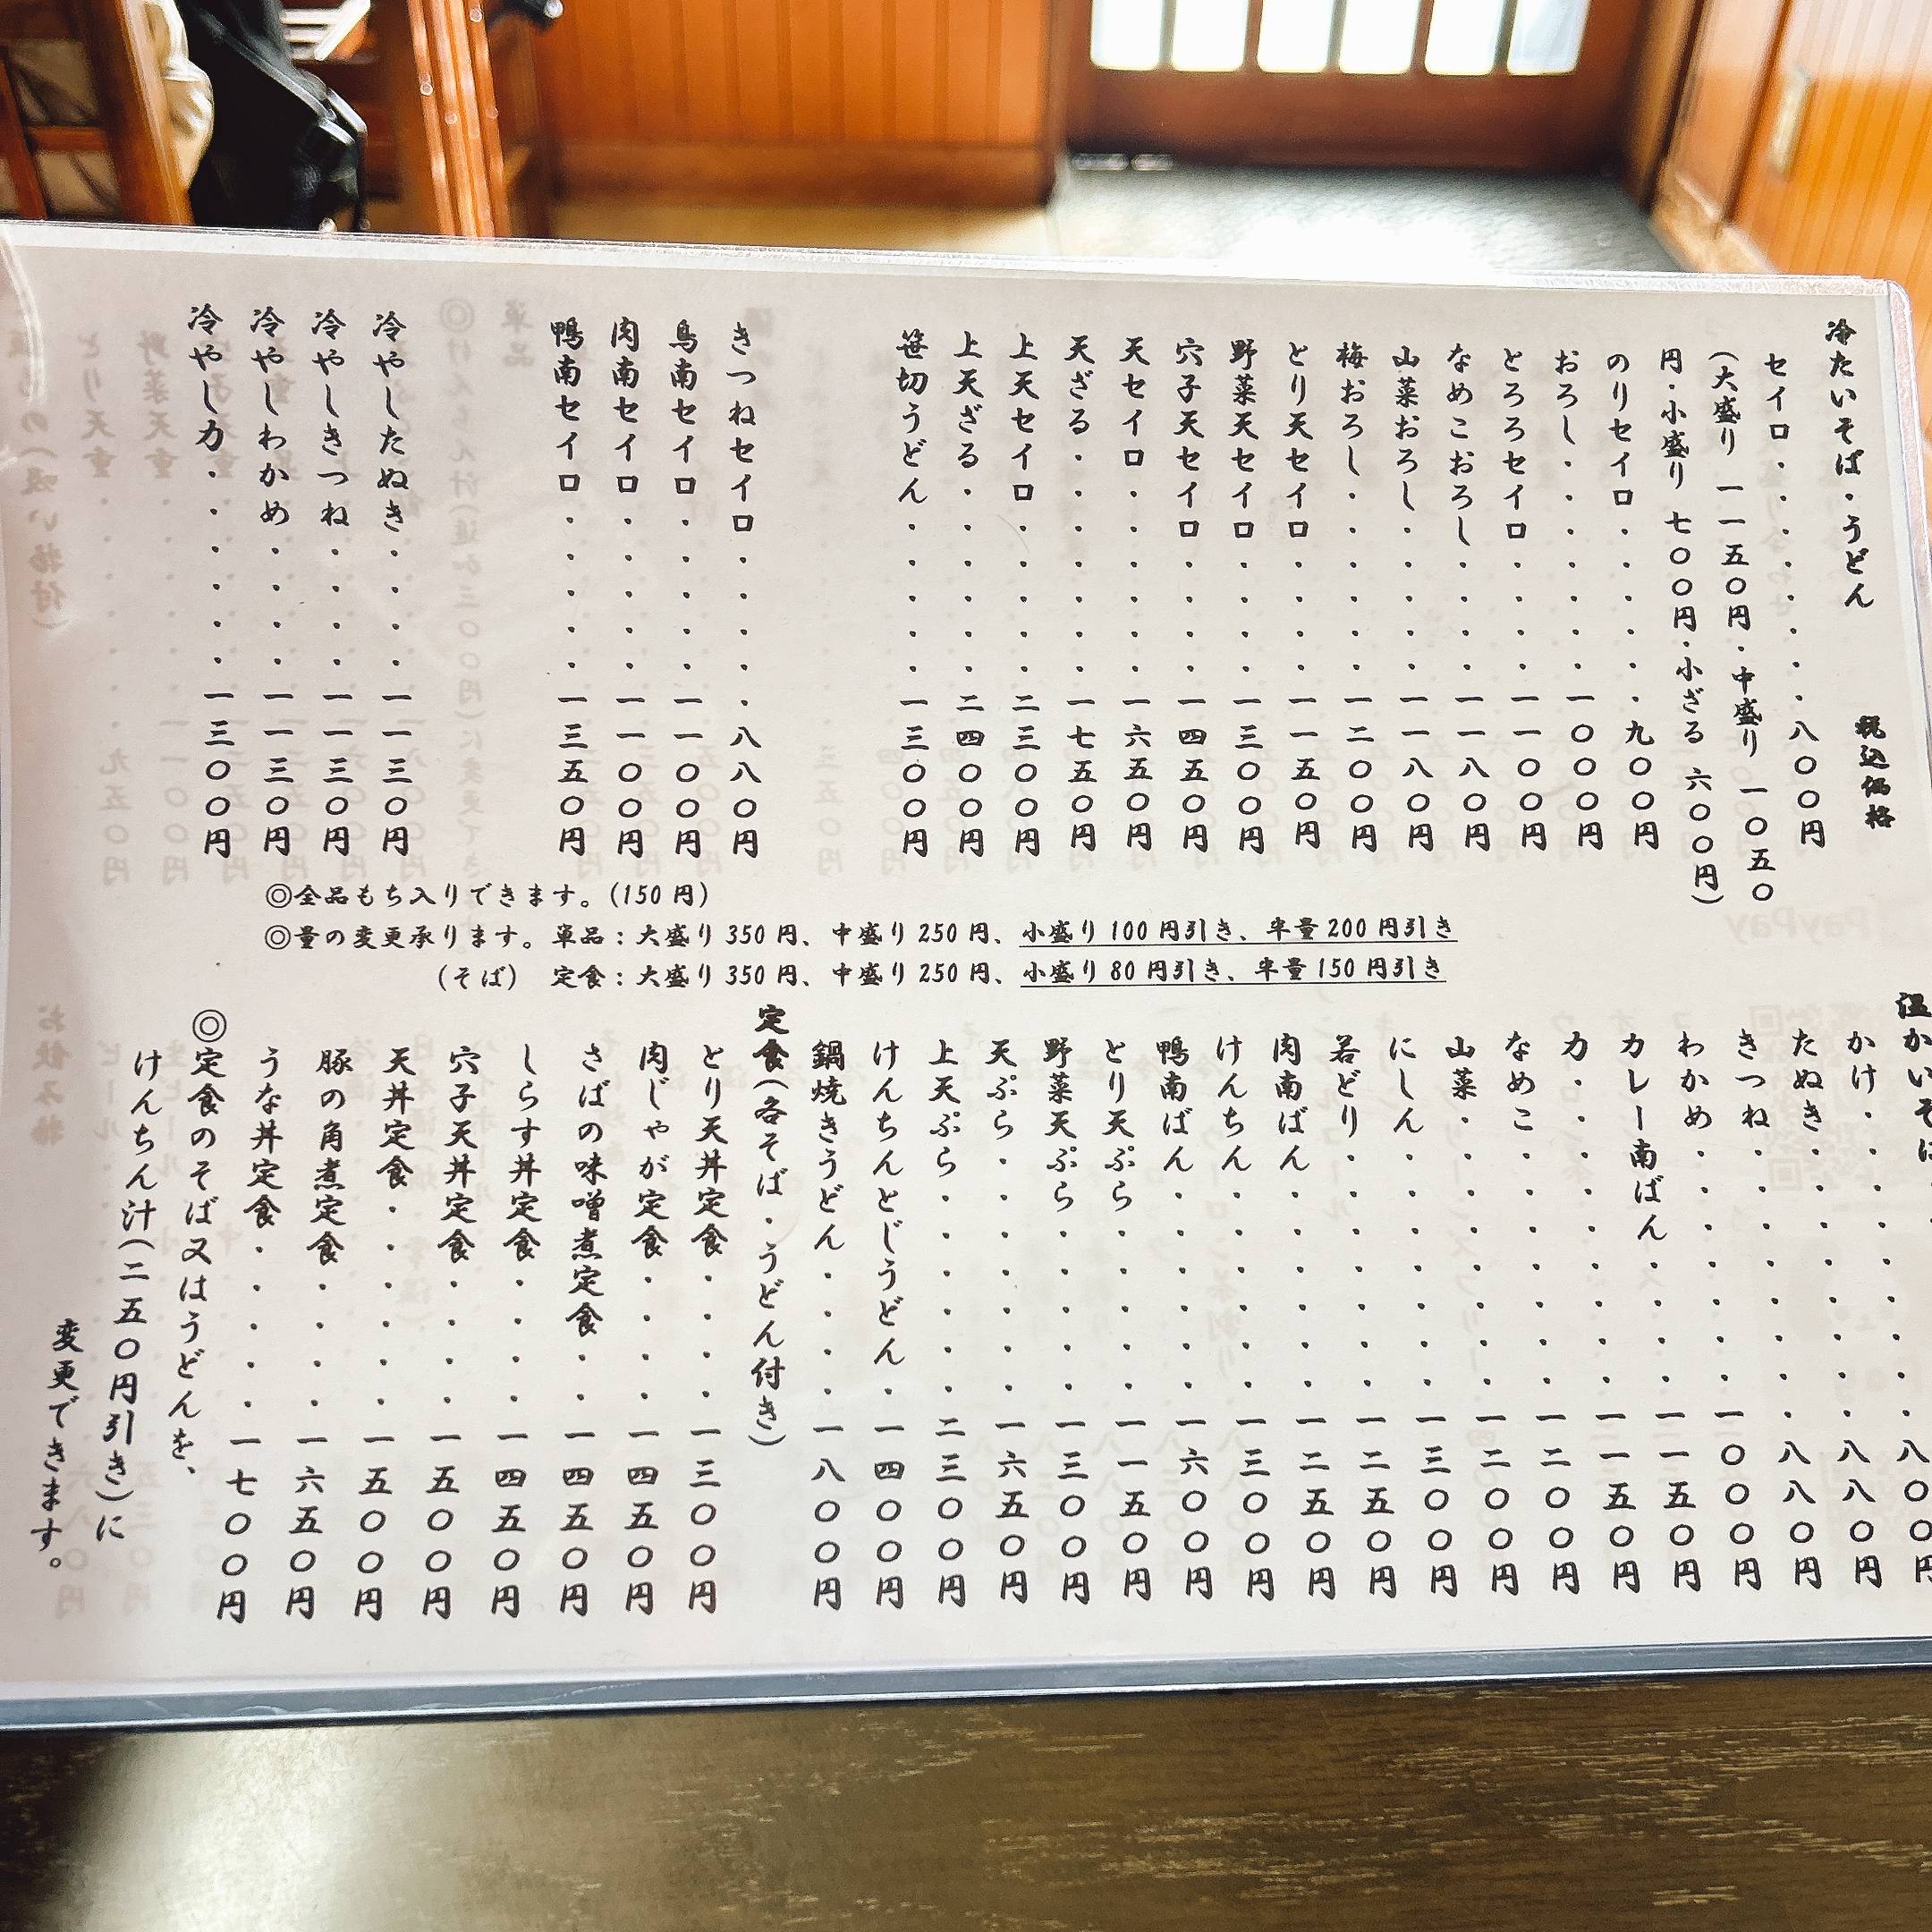 冷たいそば・うどん　税込価格
セイロ・・・・・・・・八〇〇円
(大盛り 一一五〇円・中盛り 一〇五〇
円・小盛り 七〇〇円・小ざる 六〇〇円)
のりセイロ・・・・・・九〇〇円
おろし・・・・・・・一〇〇〇円
とろろセイロ・・・・一一〇〇円
なめこおろし・・・・一一八〇円
山菜おろし・・・・・一一八〇円
梅おろし・・・・・・一二〇〇円
とり天セイロ・・・・一一五〇円
野菜天セイロ・・・・一三〇〇円
穴子天セイロ・・・・一四五〇円
天セイロ・・・・・・一六五〇円
天ざる・・・・・・・一七五〇円
上天セイロ・・・・・二三〇〇円
上天ざる・・・・・・二四〇〇円
笹切うどん・・・・・一三〇〇円
きつねセイロ・・・・・八八〇円
鳥南セイロ・・・・・一一〇〇円
肉南セイロ・・・・・一一〇〇円
鴨南セイロ・・・・・一三五〇円
冷やしたぬき・・・・一一三〇円
冷やしきつね・・・・一一三〇円
冷やしわかめ・・・・一一三〇円
冷やし力・・・・・・一三〇〇円
◎全品もち入りできます。(150円)
◎量の変更承ります。単品：大盛り350円、中盛り250円、小盛り100円引き、半量200円引き
(そば)　定食：大盛り350円、中盛り250円、小盛り80円引き、半量150円引き
温かいそば
かけ・・・・・・・・八〇〇円
たぬき・・・・・・・八八〇円
きつね・・・・・・・八八〇円
わかめ・・・・・・・一〇〇〇円
カレー南ばん・・・・一一五〇円
力・・・・・・・・・一一五〇円
なめこ・・・・・・・一二〇〇円
山菜・・・・・・・・一二〇〇円
にしん・・・・・・・一三〇〇円
若どり・・・・・・・一二五〇円
肉南ばん・・・・・・一二五〇円
けんちん・・・・・・一三〇〇円
鴨南ばん・・・・・・一六〇〇円
とり天ぷら・・・・・一一五〇円
野菜天ぷら・・・・・一三〇〇円
天ぷら・・・・・・・一六五〇円
上天ぷら・・・・・・二三〇〇円
けんちんとじうどん・一四〇〇円
鍋焼きうどん・・・・一八〇〇円
定食(各そば・うどん付き)
とり天丼定食・・・・一三〇〇円
肉じゃが定食・・・・一四五〇円
さばの味噌煮定食・・一四五〇円
しらす丼定食・・・・一四五〇円
穴子天丼定食・・・・一五〇〇円
天丼定食・・・・・・一五〇〇円
豚の角煮定食・・・・一六五〇円
うな丼定食・・・・・一七〇〇円
◎定食のそば又はうどんを、
けんちん汁(二五〇円引き)に
変更できます。